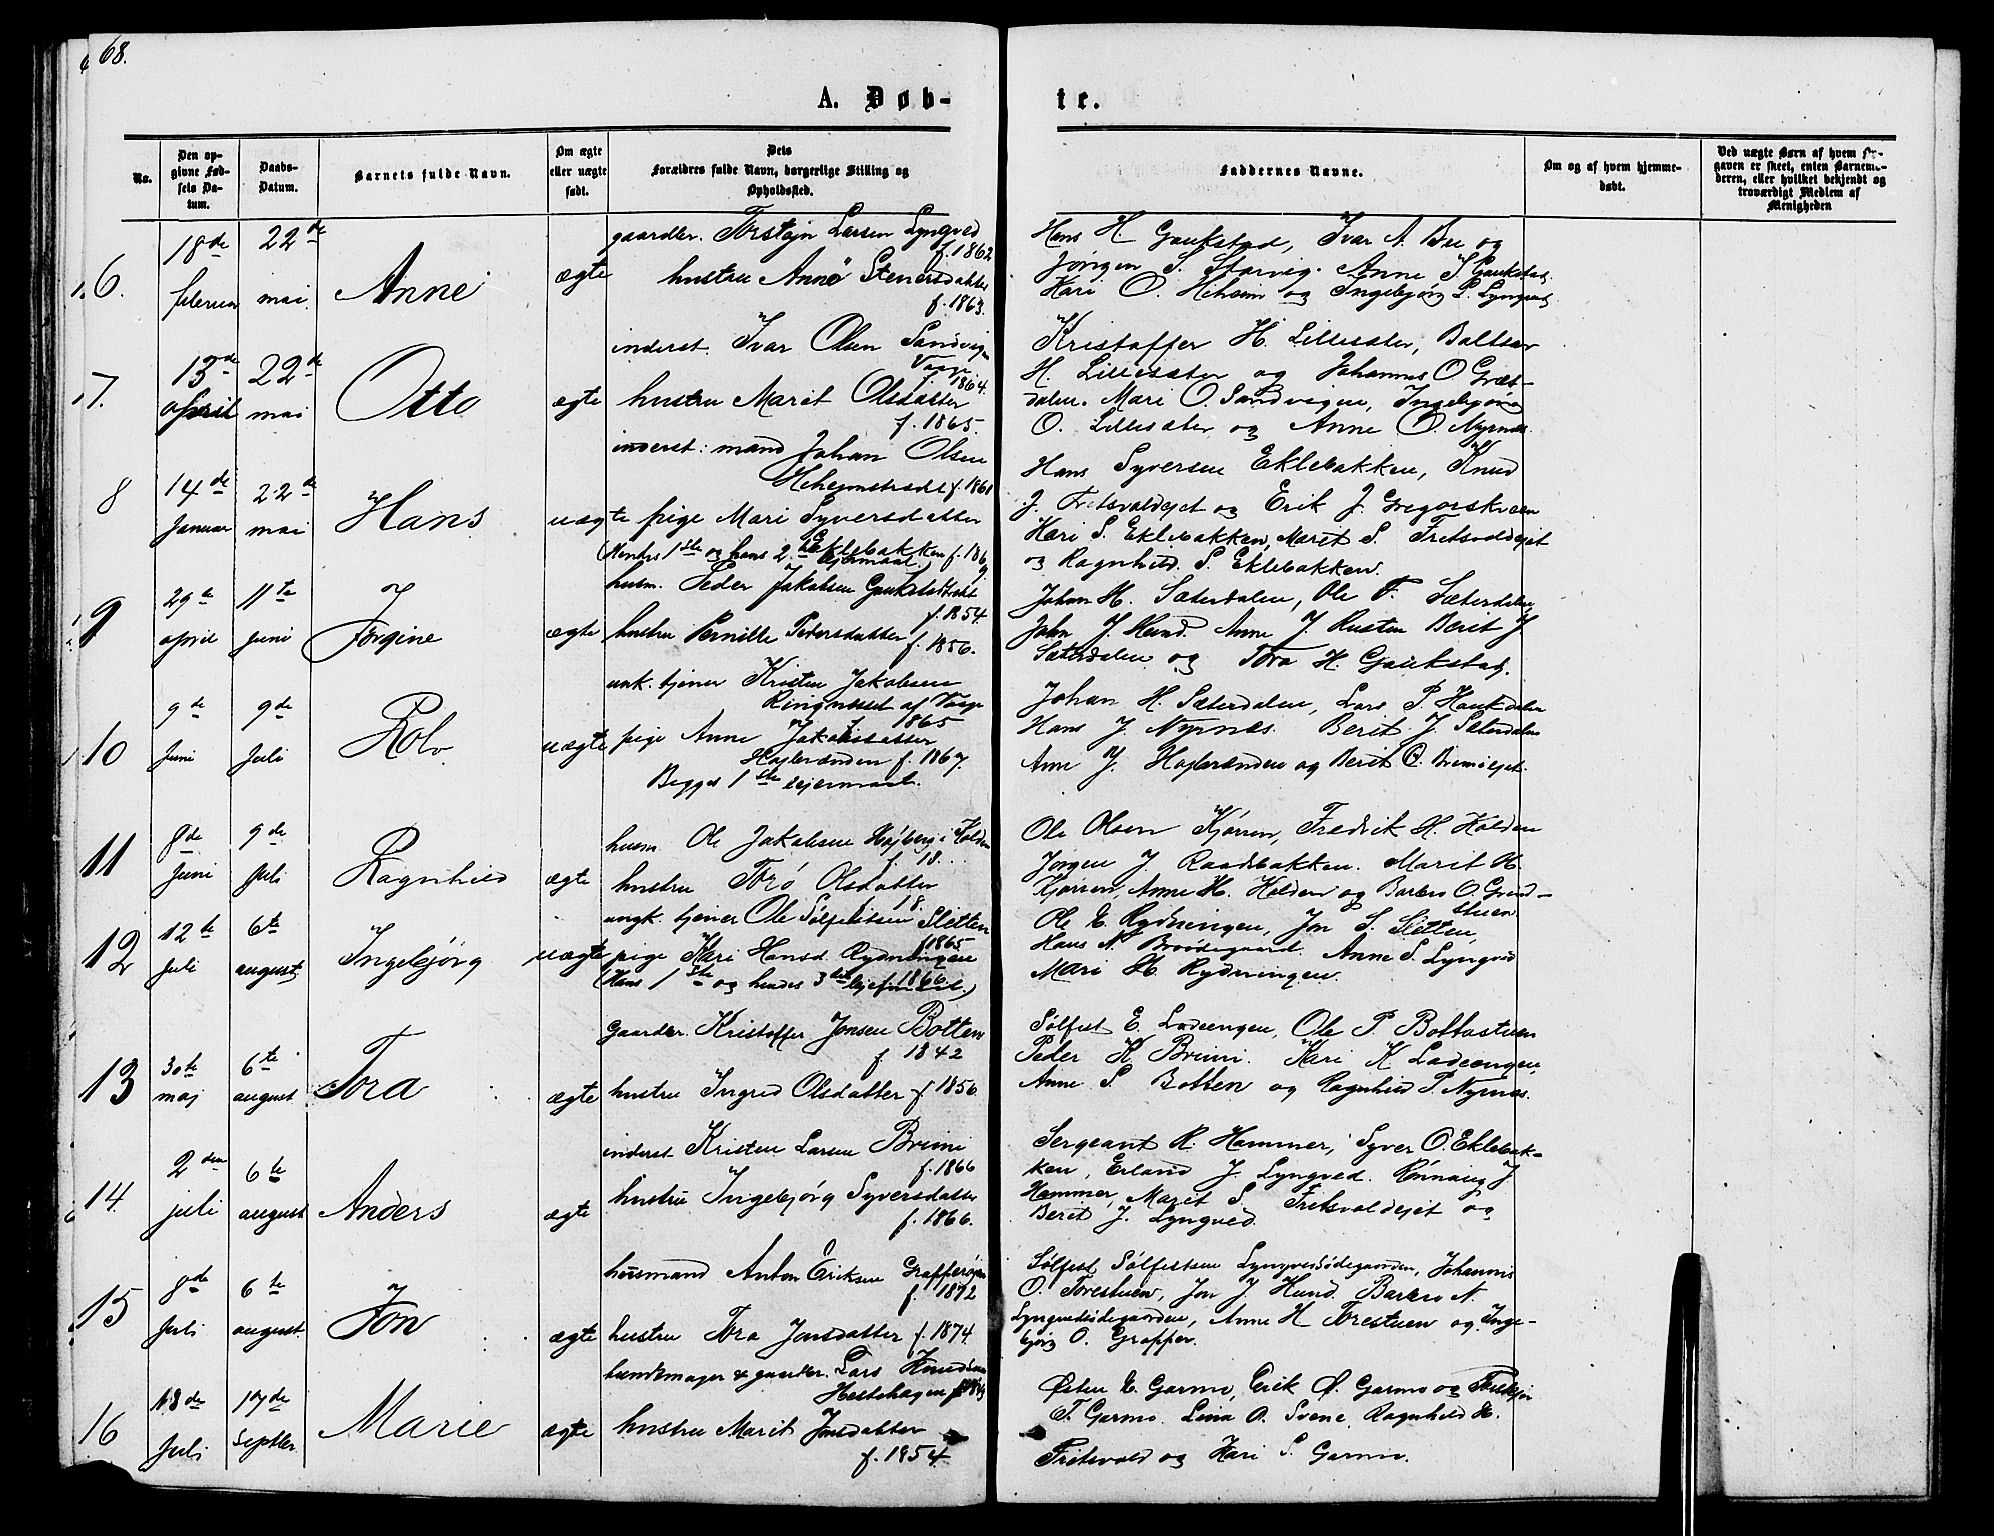 68.
A. Døb-
te.
No.
Den op-
givne Fød-
sels Da-
tum.
Daabs-
Datum.
Barnets fulde Navn.
Om ægte
eller uægte
født.
Dets
Forældres fulde Navn, borgerlige Stilling og
Opholdssted.
Faddernes Navne.
Om og af hvem hjemme-
døbt.
Ved uægte Børn af hvem Op-
gaven er skeet, enten Barnemo-
deren, eller hvilket bekjendt og
troværdigt Medlem af
Menigheden
6.
18de
februar
22de
mai
Anne
ægte
gaardbr. Torstejn Larsen Lyngved
f. 1862
hustru Anne Stenersdatter
f. 1863.
Hans H Gaukstad, Ivar A. Bu og
Jørgen S. Storvig. Anne S. Gaukstad,
Kari O. Hiheim og Ingebjørg L. Lyngved
7.
13de
april
22de
mai
Otto
ægte
inderst. Ivar Olsen Sandvigen
Vaage
1864.
hustru Marit Olsdatter
f. 1865.
Kristoffer H. Lillesæter, Baltser
H. Lillesæter og Johannes O Græs-
dalen. Mari O. Sandvigen, Ingebjørg
O. Lillesæter og Anne O. Nyrnæs.
8
14de
Januar
22de
mai
Hans
uægte
inderst: mand Johan Olsen
f. 1861
pige Mari Syversdatter
Eklebakken f. 1869
(Hendes 1ste og hans 2det lejermaal.)
Hans Syversen Eklebakken, Knud
J. Fritsvoldejet og Erik J. Gregorskveen
Kari S. Eklebakken, Marit S. Fritsvoldejet
og Ragnhild. S. Eklebakken.
9
29de
april
11te
juni
Jørgine
ægte
husm. Peder Jakobsen
f. 1854
hustru Pernille Pedersdatter f. 1856.
Johan H. Sæterdalen, Ole F. Sæterdalen
John J. Hund. Anne J. Rusten Berit J
Sæterdalen og Tora H. Gaukstad.
10
9de
Juni
9de
Juli
Rolv
uægte
unk. tjener Kristen Jakobsen
Ringnæsset af Vaage
f. 1865
pige Anne Jakobsdatter
Højbrænden f. 1867.
Begges 1ste lejermaal.
Johan H. Sæterdalen, Lars P. Haukdalen
Hans J. Nyrnæs. Berit J. Sæterdalen
Anne J. Højbrænden og Berit O. Brimiejet.
11
8de
Juni
9de
Juli
Ragnhild
ægte
husm. Ole Jakobsen Højberg i Holden
f. 18...
hustru Torø Olsdatter
f. 18.
Ole Olsen Kjørren, Fredrik H. Holden
Jørgen J. Raadsbakken. Marit H.
Kjørren, Anne H. Holden og Barbro O. Grind-
stuen.
12
12te
Juli
6te
august
Ingebjørg
uægte
ungk. tjener Ole Sølfestsen Sletten
f 1865
pige Kari Hansd. Rydningen
1866.
(Hans 1ste og hendes 3die lejermaal.)
Ole E. Rydningen, Jon S. Sletten,
Hans N. Brødegaard. Anne S. Lyngved
Mari H. Rydningen.
13
30te
maj
6te
august
Tora
ægte
Gaardbr. Kristoffer Jonsen Botten
f. 1842
hustru Ingrid Olsdatter f. 1856.
Sølfest E. Ladeengen, Ole P. Bottastuen
Peder K. Brimi. Kari K Ladeengen,
Anne S. Botten og Ragnhild P. Nyrnæs.
14.
2den
juli
6te
august
Anders
ægte
inderst Kristen Larsen Brimi
f. 1866
hustru Ingebjørg Syversdatter
f. 1866.
Sergeant R. Hammer, Syver O. Eklebak-
ken, Erland J. Lyngved. Rønnaug J
Hammer, Marit S. Fritsvoldejet og
Berit J. Lyngved.
15
8de
Juli
6te
august.
Jon
ægte
husmand Anton Eriksen
f. 1872
hustru Tora Jonsdatter f. 1874
Sølfest Sølfestsen Lyngvedødegaarden, Johannes
O. Torestuen, Jon J Hund. Barbro N.
Lyngvedødegaarden, Anne H Torestuen og Inge-
bjørg O. Grapper.
16
18de
Juli
17de
Septbr.
Marie
ægte
bundtmager & gaardbr. Lars Knudsen
Hestehagen
hustru Marit Jonsdatter
f. 1854.
Østen E. Garmo, Erik Ø. Garmo og
T. Garmo. Lina O. Svene, Ragnhild H.
Fritsvold og Kari S. Garmo.